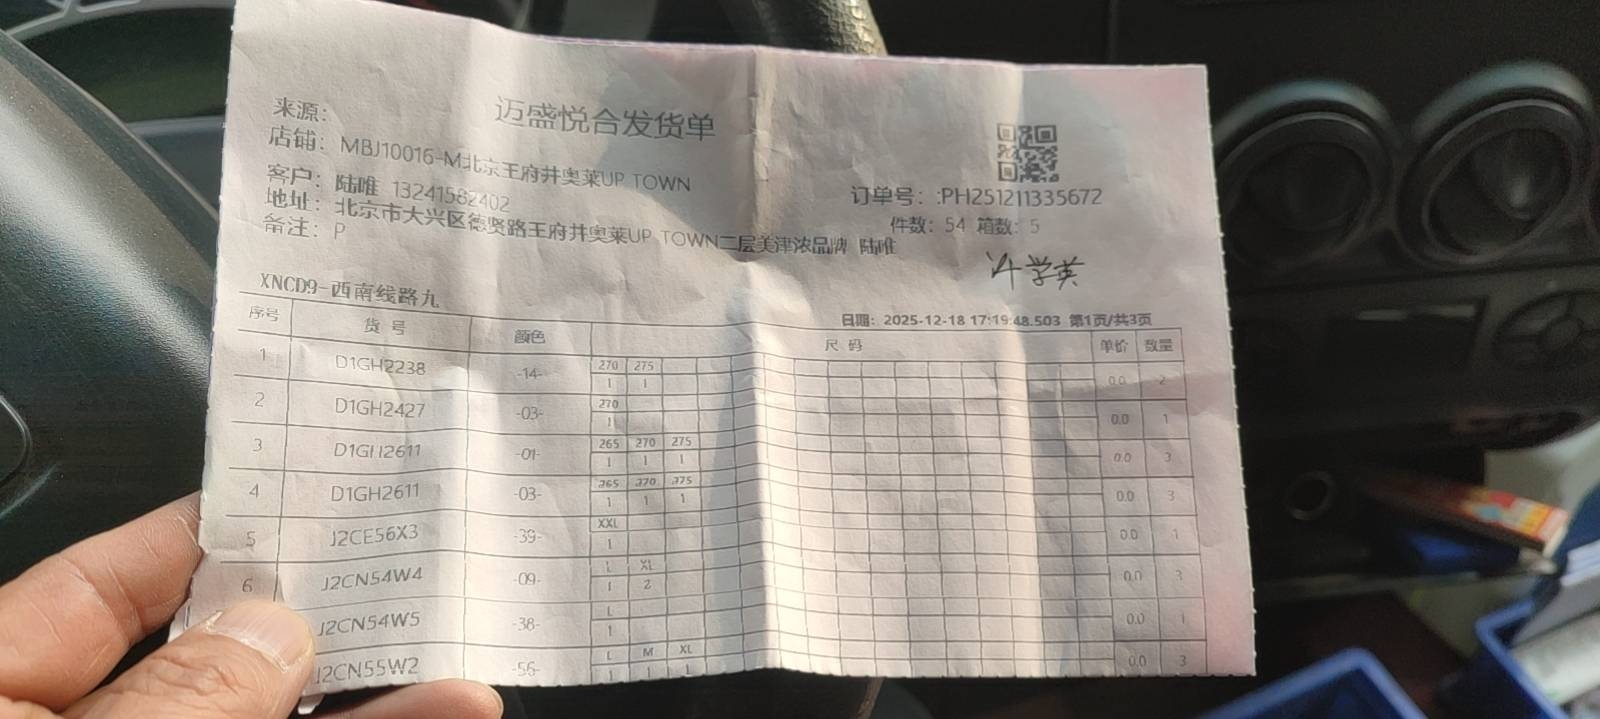 迈盛悦合发货单
来源：
店铺：MBJ10016-M北京王府井奥莱UP TOWN
客户：陆唯 13241582402
地址：北京市大兴区德贤路王府井奥莱UP TOWN二层美津浓品牌 陆唯
备注：P
订单号：:PH251211335672
件数：54 箱数：5
学英
XNCD9-西南线路九
日期：2025-12-18 17:19:48.503 第1页/共3页
序号 货号 颜色 尺码 单价 数量
1 D1GH2238 -14- 270 275 0.0 2
1 1
2 D1GH2427 -03- 270 0.0 1
1
3 D1GH2611 -01- 265 270 275 0.0 3
1 1 1
4 D1GH2611 -03- 265 270 275 0.0 3
1 1 1
5 J2CE56X3 -39- XXL 0.0 1
1
6 J2CN54W4 -09- L XL 0.0 3
1 2
J2CN54W5 -38- L 0.0 1
1
J2CN55W2 -56- L M XL 0.0 3
1 1 1